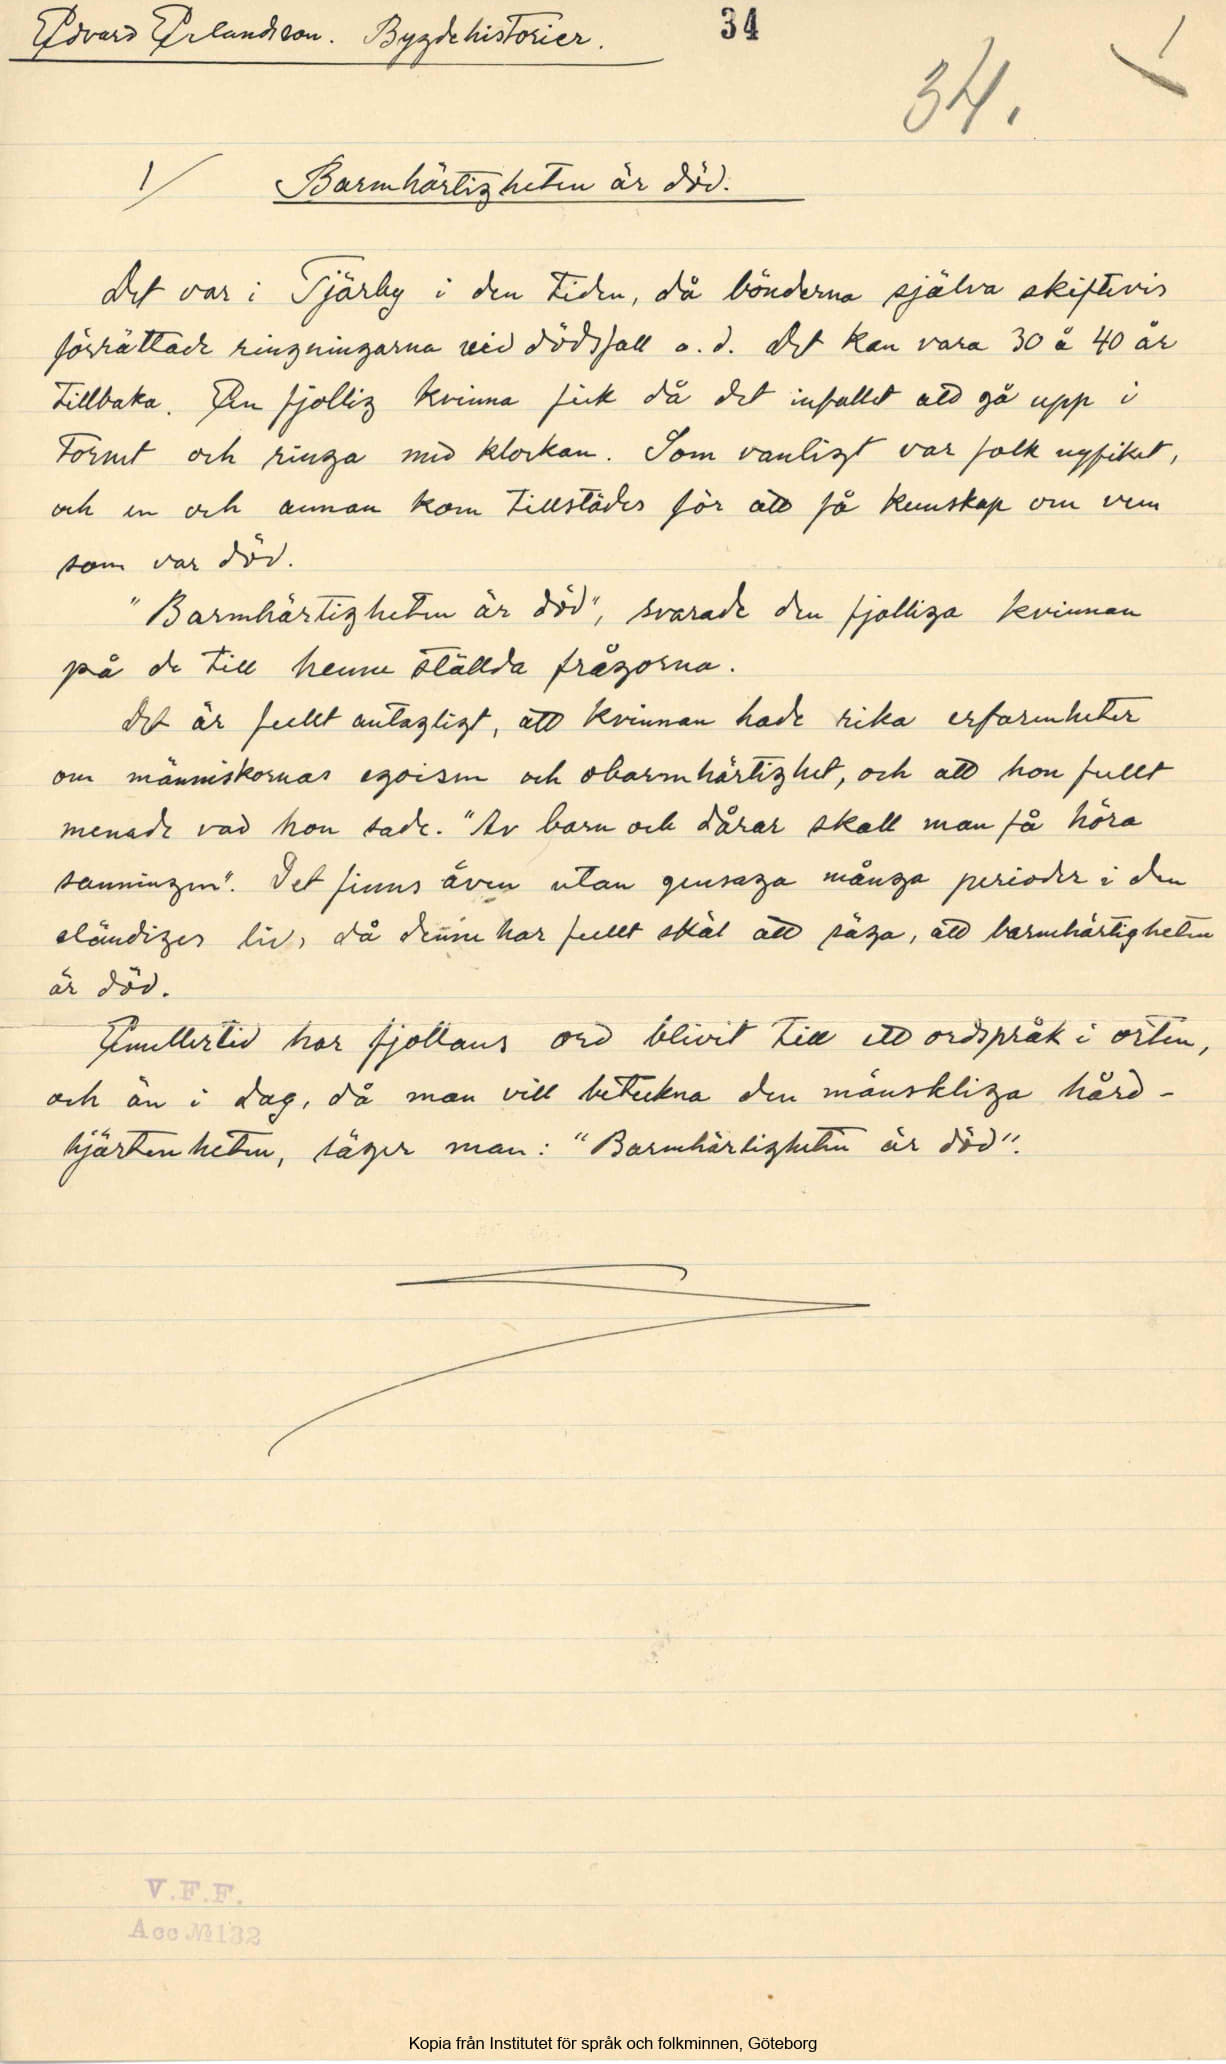 Edvard Erlandsson. Bygdehistorier.
34
34.
1
1/ Barmhärtigheten är död.
Det var i Tjärby i den tiden, då bönderna själva skiftevis
förrättade ringningarna vid dödsfall o. d. Det kan vara 30 à 40 år
tillbaka. En fjollig kvinna fick då det infallet att gå upp i
tornet och ringa med klockan. Som vanligt var folk nyfiket,
och en och annan kom tillstädes för att få kunskap om vem
som var död.
"Barmhärtigheten är död", svarade den fjolliga kvinnan
på de till henne ställda frågorna.
Det är fullt antagligt, att kvinnan hade rika erfarenheter
om människornas egoism och obarmhärtighet, och att hon fullt
menade vad hon sade. "Av barn och dårar skall man få höra
sanningen". Det finns även utan gensaga många perioder i den
eländiges liv, då denne har fullt skäl att säga, att barmhärtigheten
är död.
Emellertid har fjollans ord blivit till ett ordspråk i orten,
och än i dag, då man vill beteckna den mänskliga hård-
hjärtenheten, säger man: "Barmhärtigheten är död".
V.F.F.
Acc № 132
Kopia från Institutet för språk och folkminnen, Göteborg